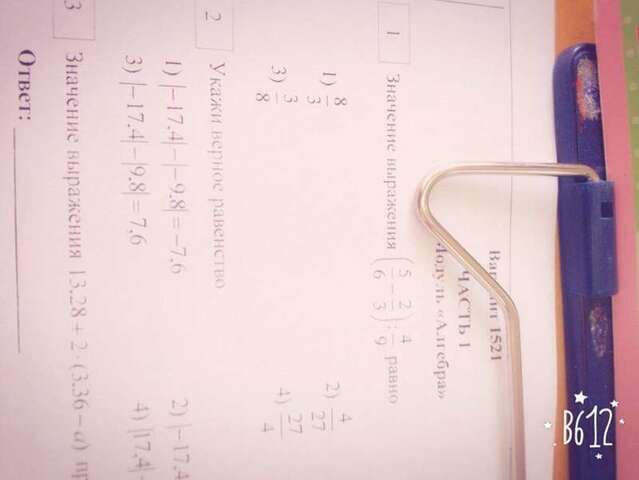 Вариант 1521
ЧАСТЬ 1
Модуль «Алгебра»
1 Значение выражения (5/6 − 2/3) : 4/9 равно
1) 8/3 2) 4/27
3) 3/8 4) 27/4
2 Укажи верное равенство
1) |−17,4| − |−9,8| = −7,6 2) |−17,4
3) |−17,4| − |9,8| = 7,6 4) |17,4| −
3 Значение выражения 13,28 + 2 · (3,36 − a) пр
Ответ:
B612